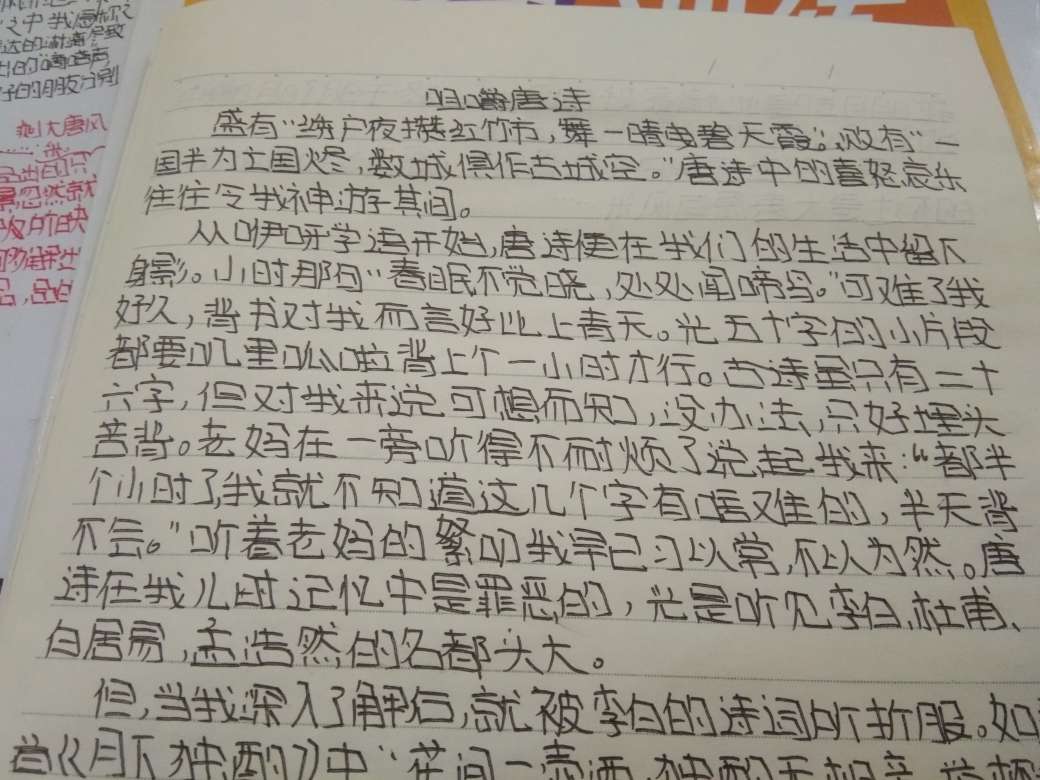 咀嚼唐诗
盛有"绛户夜攒红竹市，舞一晴曳碧天霞"；败有"一
国半为亡国烬，数城俱作古城空。"唐诗中的喜怒哀乐
往往令我神游其间。
从咿呀学语开始，唐诗便在我们的生活中留下
身影。小时那句"春眠不觉晓，处处闻啼鸟。"可难了我
好久，背书对我而言好比上青天。光五十字的小片段
都要叽里呱啦背上个一小时才行。古诗虽只有二十
六字，但对我来说可想而知，没办法，只好埋头
苦背。老妈在一旁听得不耐烦了说起我来："都半
个小时了，我就不知道这几个字有啥难的，半天背
不会。"听着老妈的繁叨我早已习以常，不以为然。唐
诗在我儿时记忆中是罪恶的，光是听见李白、杜甫、
白居易，孟浩然的名都头大。
但，当我深入了解后，就被李白的诗词所折服。如
首《月下独酌》中"花间一壶酒，独酌无相亲，举杯
之中我
达的淋漓尽致
的朋友分别
大唐风
忽然